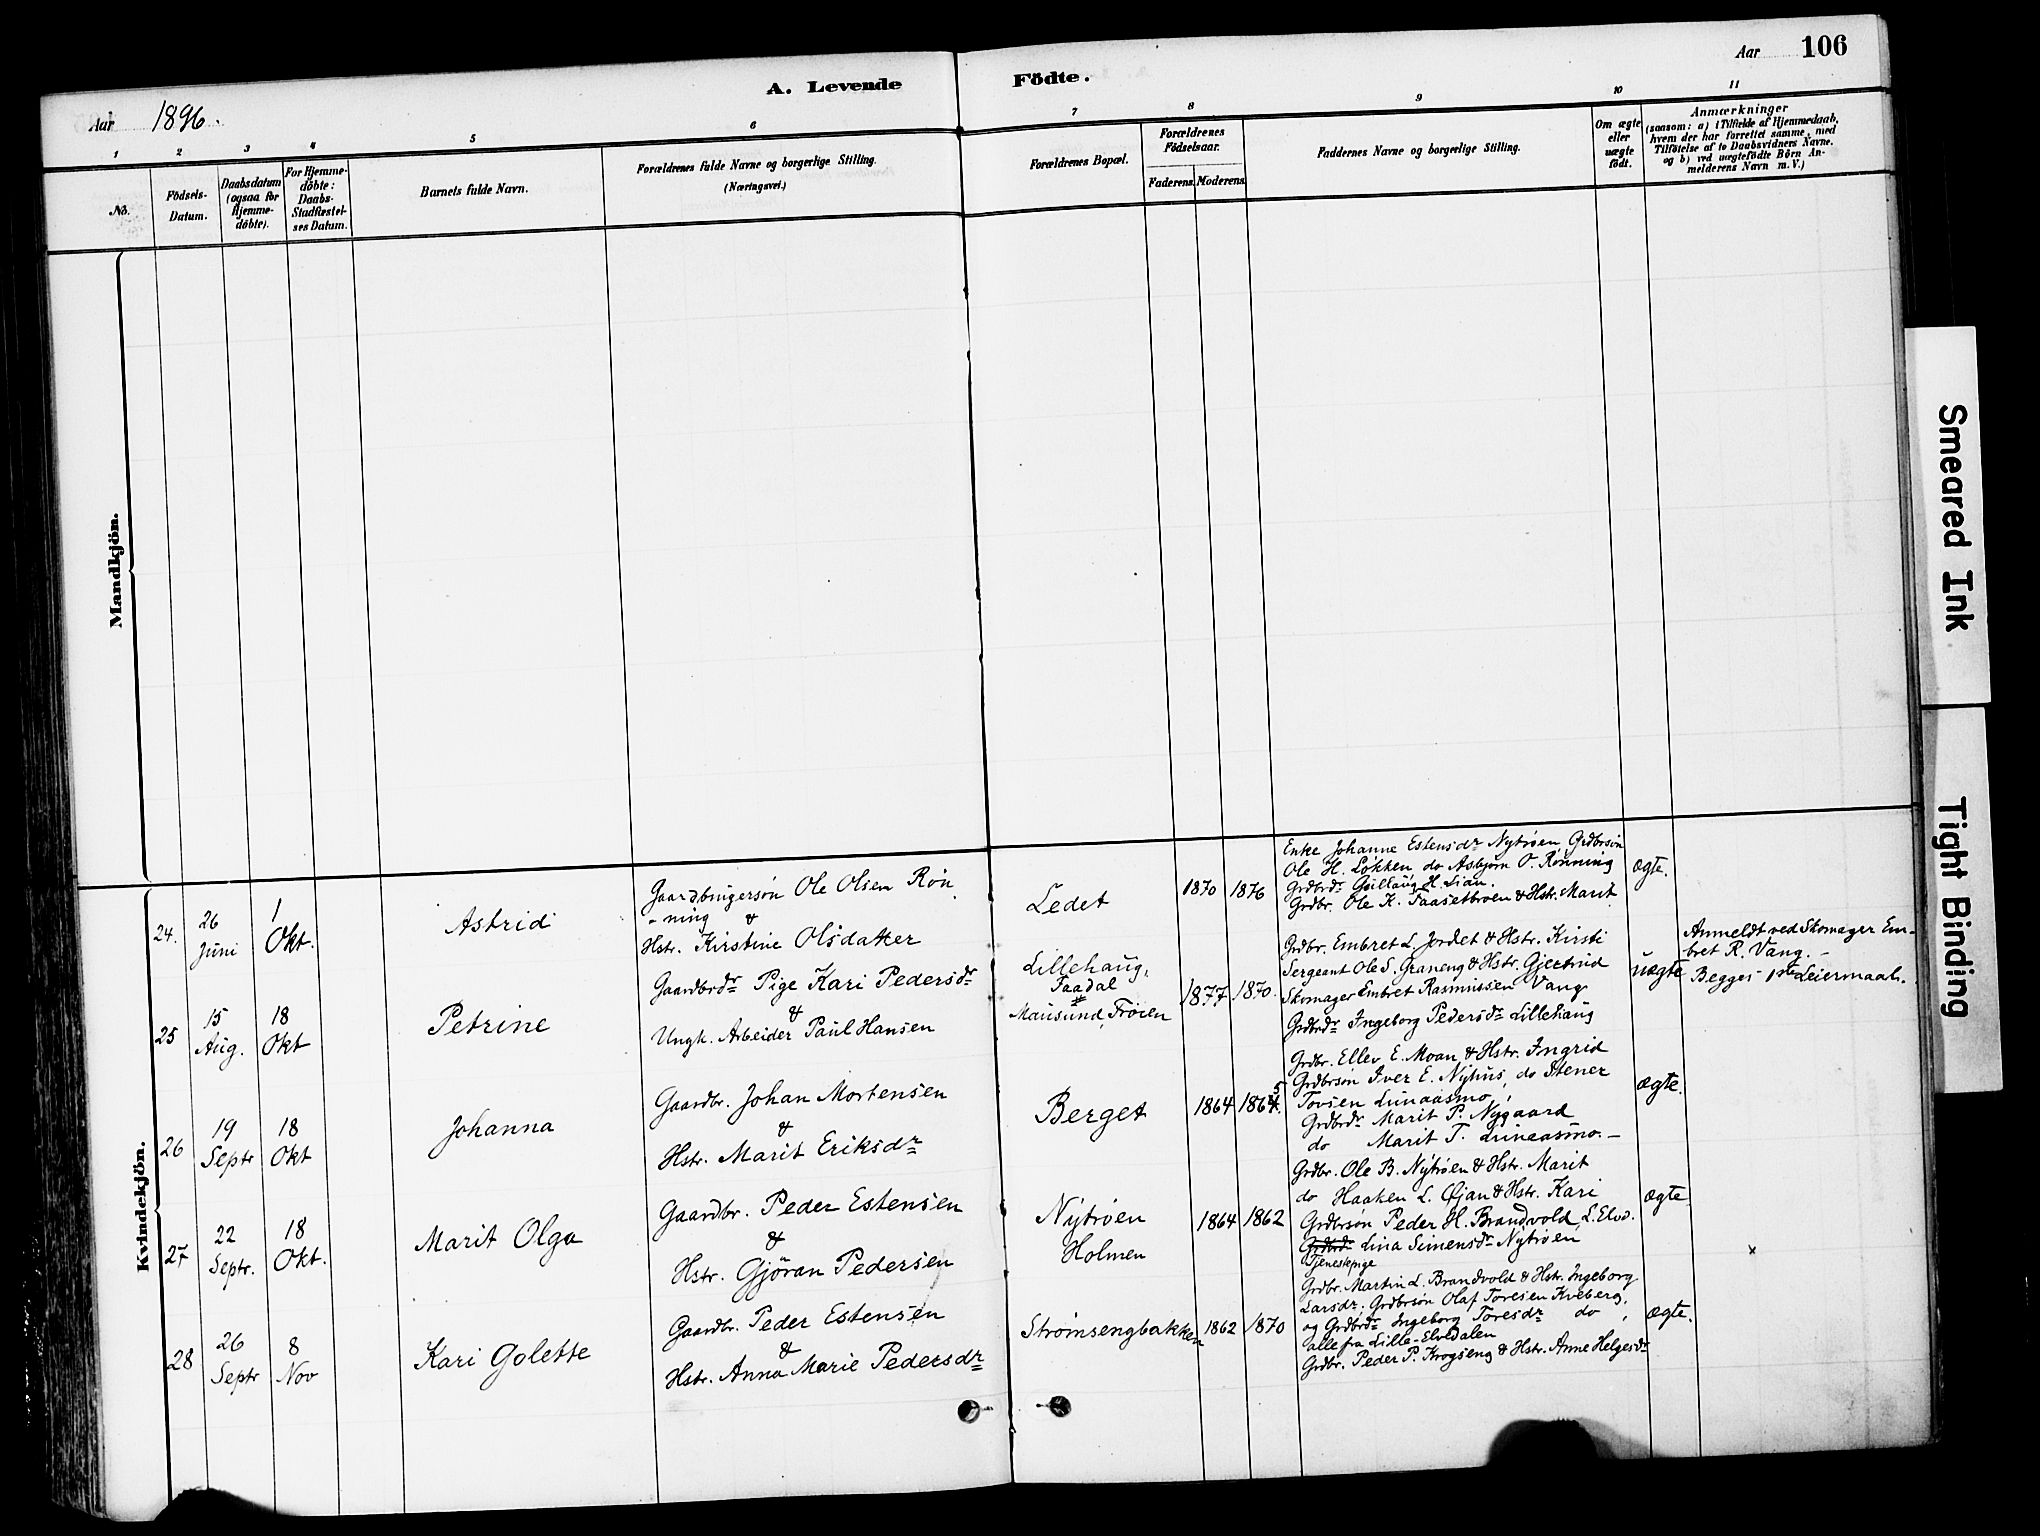 A. Levende Födte.
Aar 106
Aar 1896.
1 2 3 4 5 6 7 8 9 10 11
No.
Födsels-Datum.
Daabsdatum (ogsaa for Hjemme-döbte).
For Hjemme-döbte: Daabs-Stadfæstel-ses Datum.
Barnets fulde Navn.
Forældrenes fulde Navne og borgerlige Stilling.
(Næringsvei.)
Forældrenes Bopæl.
Forældrenes Födselsaar.
Faderens. Moderens.
Faddernes Navne og borgerlige Stilling.
Om ægte eller uægte födt.
Anmærkninger
(saasom: a) i Tilfælde af Hjemmedaab,
hvem der har forrettet samme, med
Tilföielse af to Daabsvidners Navne.
og b) ved uægtefödte Börn An-
melderens Navn m.V.)
Mandkjön.
Kvindekjön.
24.
26 Juni
1 Okt.
Astrid
Gaardbrugersøn Ole Olsen Røn
-ning &
Hstr. Kirstine Olsdatter
Ledet
1870 1876
Enke Johanne Estensdr Nytrøen, Grdbrsøn
Ole H. Løkken do Asbjørn O. Rønning
Grdbrdr Guillaug H. Lian.
Grdbr. Ole K. Faasetbroen & Hstr. Marit
ægte.
25
15 Aug.
18 Okt
Petrine
Gaardbrdr Pige Kari Pedersdr
&
Ungk. Arbeider Paul Hansen
Lillehaug,
Faadal
Mausund, Frøien
1877 1870.
Grdbr. Embret L. Jordet & Hstr. Kirsti
Sergeant Ole S. Graneng & Hstr. Gjertrud
Skomager Embret Rasmussen Vang
Grdbrdr Ingeborg Pedersdr Lillehaug
uægte
Anmeldt ved Skomager Em-
bret R. Vang. -
Begges 1ste Leiermaal.
26
19 Septr
18 Okt
Johanna
Gaardbr. Johan Mortensen
&
Hstr. Marit Eriksdr
Berget
1864 1865
Grdbr. Ellev E. Moan & Hstr. Ingrid
Grdbrsøn Iver E. Nyhus, do Stener
Tovsen Lunaasmo,
Grdbrdr Marit P. Nygaard
do Marit T. Lunaasmo. -
ægte.
27
22 Septr.
18 Okt.
Marit Olga
Gaardbr. Peder Estensen
&
Hstr. Gjöran Pedersen
Nytrøen
Holmen
1864 1862
Grdbr. Ole B. Nytrøen & Hstr. Marit
do Haaken L. Øjan & Hstr. Kari
Grdbrsøn Peder H. Brandvold, L. Elvd.
Grdbrdr Lina Simensdr Nytrøen
Tjenestepige
ægte
x
28
26 Septr
8 Nov
Kari Golette
Gaardbr. Peder Estensen
&
Hstr. Anna Marie Pedersdr
Strømsengbakken
1862 1870
Grdbr. Martin L. Brandvold & Hstr. Ingeborg
Larsdr. Grdbrsøn Olaf Toresen Kveberg,
og Grdbrdr Ingeborg Toresdr do,
alle fra Lille-Elvedalen
Grdbr. Peder P. Krogseng & Hstr. Anne Helgesdr
ægte.
Smeared Ink
Tight Binding